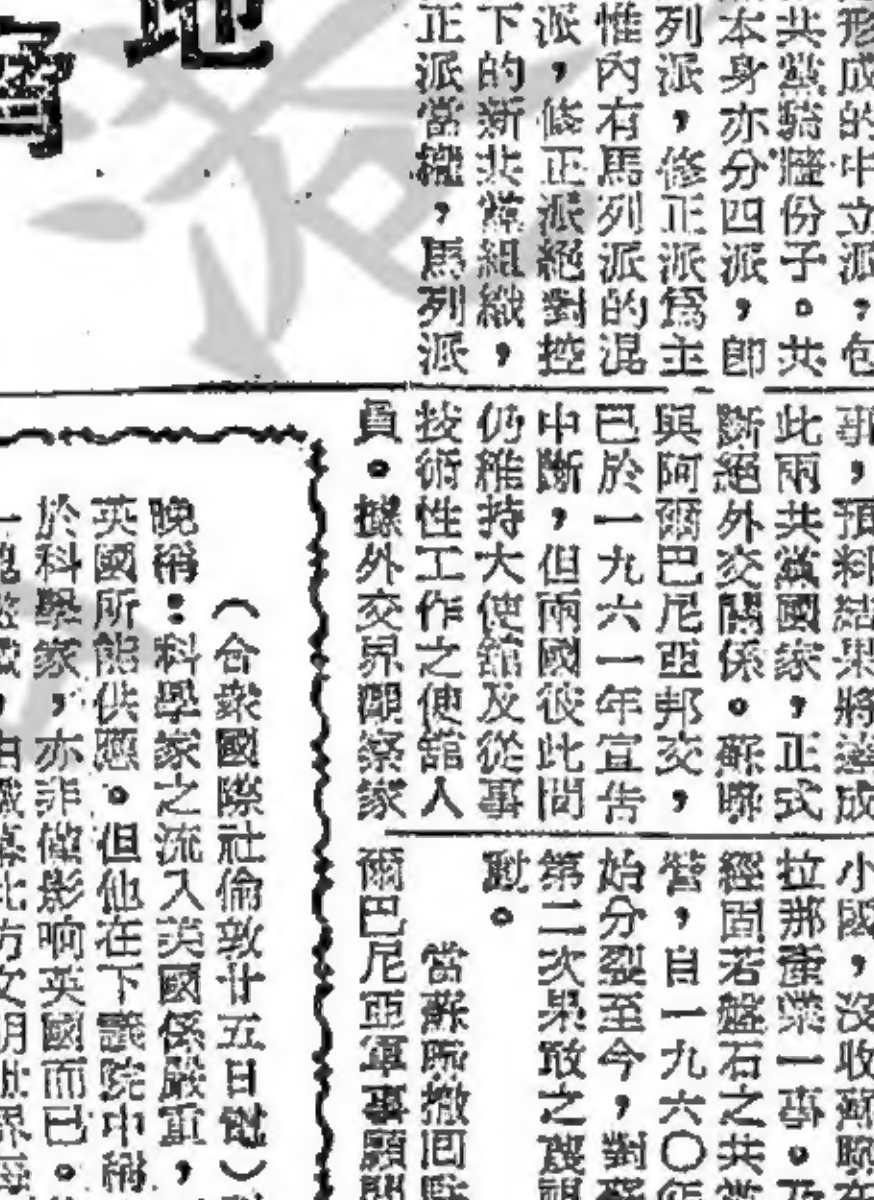 形成的中立派，包
共黨騎牆份子。共
本身亦分四派，卽
列派，修正派爲主
惟內有馬列派的混
派，修正派絕對控
下的新共黨組織，
正派當權，馬列派
事，預料結果將造成
此兩共黨國家，正式
斷絕外交關係。蘇聯
與阿爾巴尼亞邦交，
已於一九六一年宣告
中斷，但兩國彼此間
仍維持大使館及從事
技術性工作之使館人
員。據外交界觀察家
小國，沒收蘇聯在
拉那產業一事。
經固若磐石之共
營，自一九六〇年
始分裂至今，對
第二次果敢之
動。
當蘇聯撤回駐
爾巴尼亞軍事顧問
地
（合衆國際社倫敦廿五日電）
晚稱：科學家之流入美國係嚴重，
英國所能供應。但他在下議院中稱
於科學家，亦非僅影响英國而已。
方文明世界每